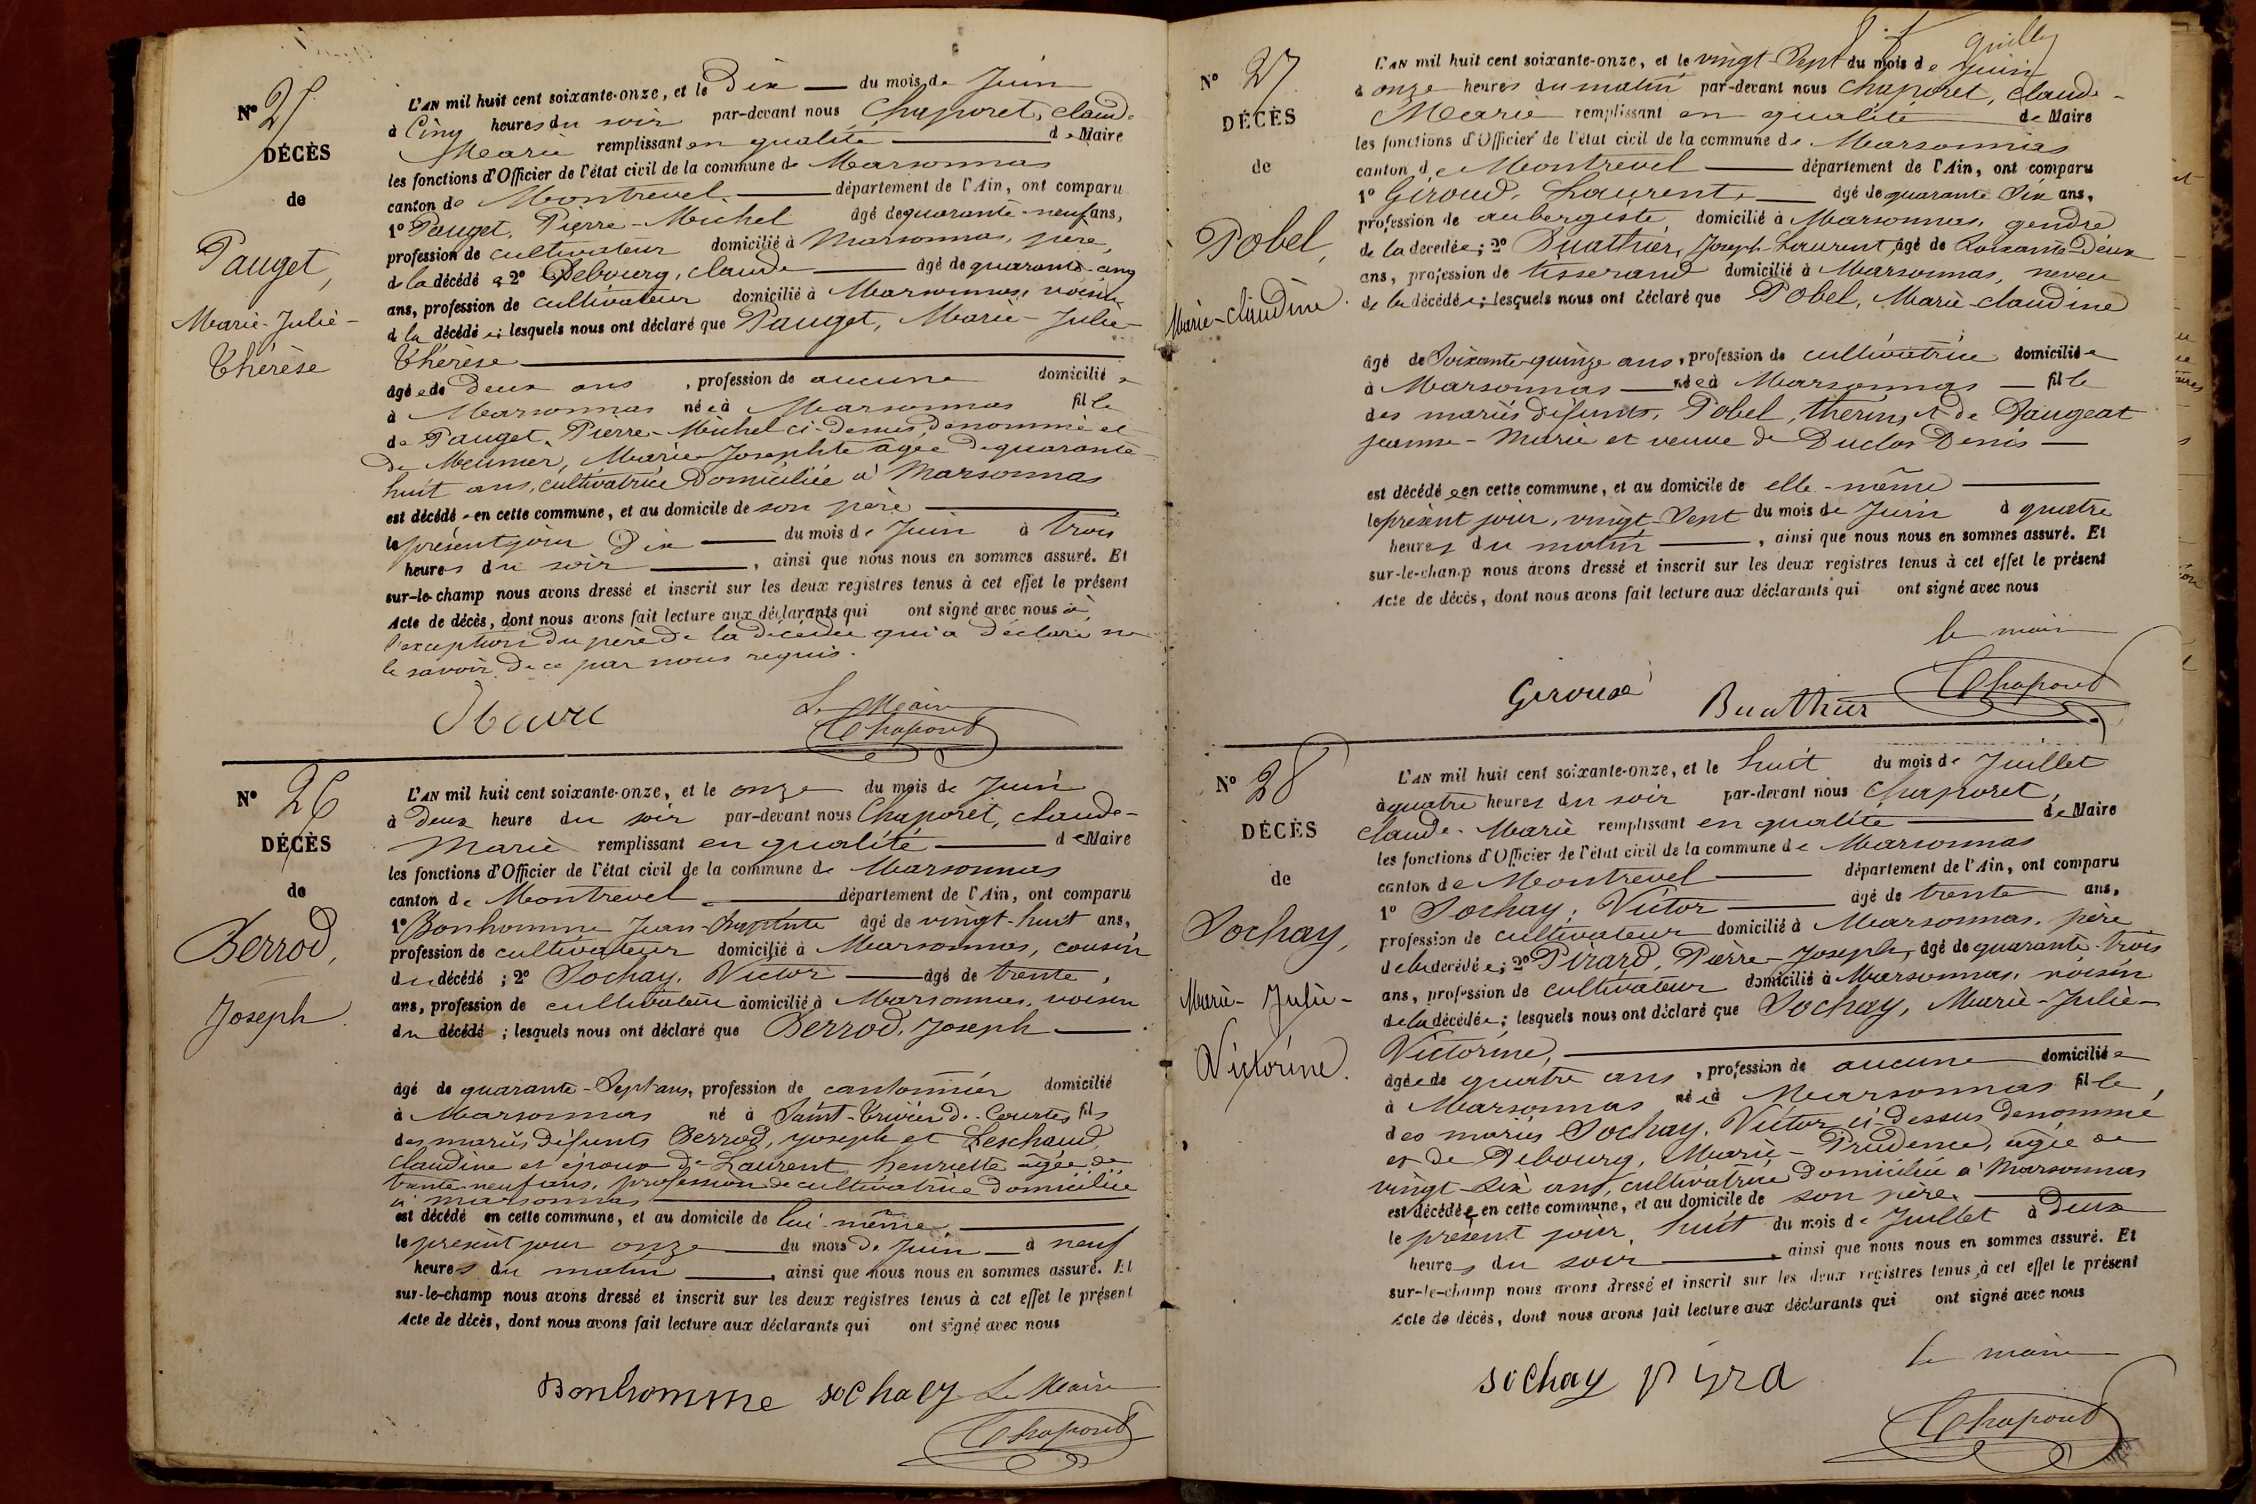 N° 25
DÉCÈS
de
Pauget,
Marie-Julie-
Thérèse
L'AN mil huit cent soixante-onze, et le Dix — du mois de Juin
à Cinq heures du soir par-devant nous Chaporet, Claude-
Marie remplissant en qualité — de Maire
les fonctions d'Officier de l'état civil de la commune de Marsonnas
canton de Montrevel — département de l'Ain, ont comparu
1° Pauget, Pierre-Michel âgé de quarante-neuf ans,
profession de cultivateur domicilié à Marsonnas, père,
de la décédée 2° Debourg, Claude — âgé de quarante-cinq
ans, profession de cultivateur domicilié à Marsonnas, voisin
d la décédée ; lesquels nous ont déclaré que Pauget, Marie-Julie-
Thérèse —
âgée de Deux ans, profession de aucune domiciliée
à Marsonnas née à Marsonnas fille
de Pauget, Pierre-Michel ci-dessus dénommé et
de Meunier, Marie-Josephte âgée de quarante-
huit ans, cultivatrice Domiciliée à Marsonnas
est décédée en cette commune, et au domicile de son père —
le présent jour Dix — du mois de Juin à trois
heures du soir —, ainsi que nous nous en sommes assuré. Et
sur-le-champ nous avons dressé et inscrit sur les deux registres tenus à cet effet le présent
Acte de décès, dont nous avons fait lecture aux déclarants qui ont signé avec nous à
l'exception du père de la décédée qui a déclaré ne
le savoir de ce par nous requis.
Le Maire
Chaporet
N° 26
DÉCÈS
de
Perrod,
Joseph.
L'AN mil huit cent soixante-onze, et le onze du mois de Juin
à Deux heure du soir par-devant nous Chaporet, Claude-
Marie remplissant en qualité — de Maire
les fonctions d'Officier de l'état civil de la commune de Marsonnas
canton de Montrevel — département de l'Ain, ont comparu
1° Bonhomme Jean-Baptiste âgé de vingt-huit ans,
profession de cultivateur domicilié à Marsonnas, cousin
du décédé ; 2° Sochay, Victor — âgé de trente,
ans, profession de cultivateur domicilié à Marsonnas, voisin
du décédé ; lesquels nous ont déclaré que Perrod, Joseph —
âgé de quarante-Sept ans, profession de cantonnier domicilié
à Marsonnas né à Saint-Trivier de Courtes fils
des mariés défunts Perrod, Joseph et Leschaud
Claudine et époux de Laurent, henriette âgée de
trente-neuf ans, profession de cultivatrice domiciliée
à Marsonnas —
est décédé en cette commune, et au domicile de lui-même —
le présent jour onze — du mois de Juin — à neuf
heures du matin —, ainsi que nous nous en sommes assuré. Et
sur-le-champ nous avons dressé et inscrit sur les deux registres tenus à cet effet le présent
Acte de décès, dont nous avons fait lecture aux déclarants qui ont signé avec nous
Bonhomme sochay Le Maire
Chaporet
N° 27
DÉCÈS
de
Pobel,
Marie-Claudine.
L'AN mil huit cent soixante-onze, et le vingt-Sept du mois de Juin
à onze heures du matin par-devant nous Chaporet, Claude-
Marie remplissant en qualité — de Maire
les fonctions d'Officier de l'état civil de la commune de Marsonnas
canton de Montrevel — département de l'Ain, ont comparu
1° Giroud, Laurent, — âgé de quarante Six ans,
profession de aubergiste domicilié à Marsonnas, gendre
de la décédée ; 2° Buathier, Joseph-Laurent, âgé de Soixante Deux
ans, profession de tisserand domicilié à Marsonnas, neveu
de la décédée ; lesquels nous ont déclaré que Pobel, Marie-Claudine
âgé de Soixante-quinze ans, profession de cultivatrice domiciliée
à Marsonnas — née à Marsonnas — fille
des mariés défunts, Pobel, Thorin, et de Paugeat
Jeanne-Marie et veuve de Duclos Denis —
est décédée en cette commune, et au domicile de elle-même —
le présent jour, vingt-Sept du mois de Juin à quatre
heures du matin —, ainsi que nous nous en sommes assuré. Et
sur-le-champ nous avons dressé et inscrit sur les deux registres tenus à cet effet le présent
Acte de décès, dont nous avons fait lecture aux déclarants qui ont signé avec nous
le maire
Giroud Buathier Chaporet
N° 28
DÉCÈS
de
Sochay,
Marie-Julie-
Victorine.
L'AN mil huit cent soixante-onze, et le huit du mois de Juillet
à quatre heures du soir par-devant nous Chaporet,
Claude-Marie remplissant en qualité — de Maire
les fonctions d'Officier de l'état civil de la commune de Marsonnas
canton de Montrevel — département de l'Ain, ont comparu
1° Sochay, Victor — âgé de trente ans,
profession de cultivateur domicilié à Marsonnas, père
de la décédée ; 2° Pirard, Pierre-Joseph, âgé de quarante-trois
ans, profession de cultivateur domicilié à Marsonnas, voisin
de la décédée ; lesquels nous ont déclaré que Sochay, Marie-Julie-
Victorine, —
âgée de quatre ans, profession de aucune domiciliée
à Marsonnas née à Marsonnas fille,
des mariés Sochay, Victor ci-dessus dénommé
et de Debourg, Marie-Prudence, âgée de
vingt-Six ans, cultivatrice domiciliée à Marsonnas
est décédée en cette commune, et au domicile de son père —
le présent jour, huit du mois de Juillet à Deux
heures du soir —, ainsi que nous nous en sommes assuré. Et
sur-le-champ nous avons dressé et inscrit sur les deux registres tenus à cet effet le présent
Acte de décès, dont nous avons fait lecture aux déclarants qui ont signé avec nous
le maire
sochay
Chaporet